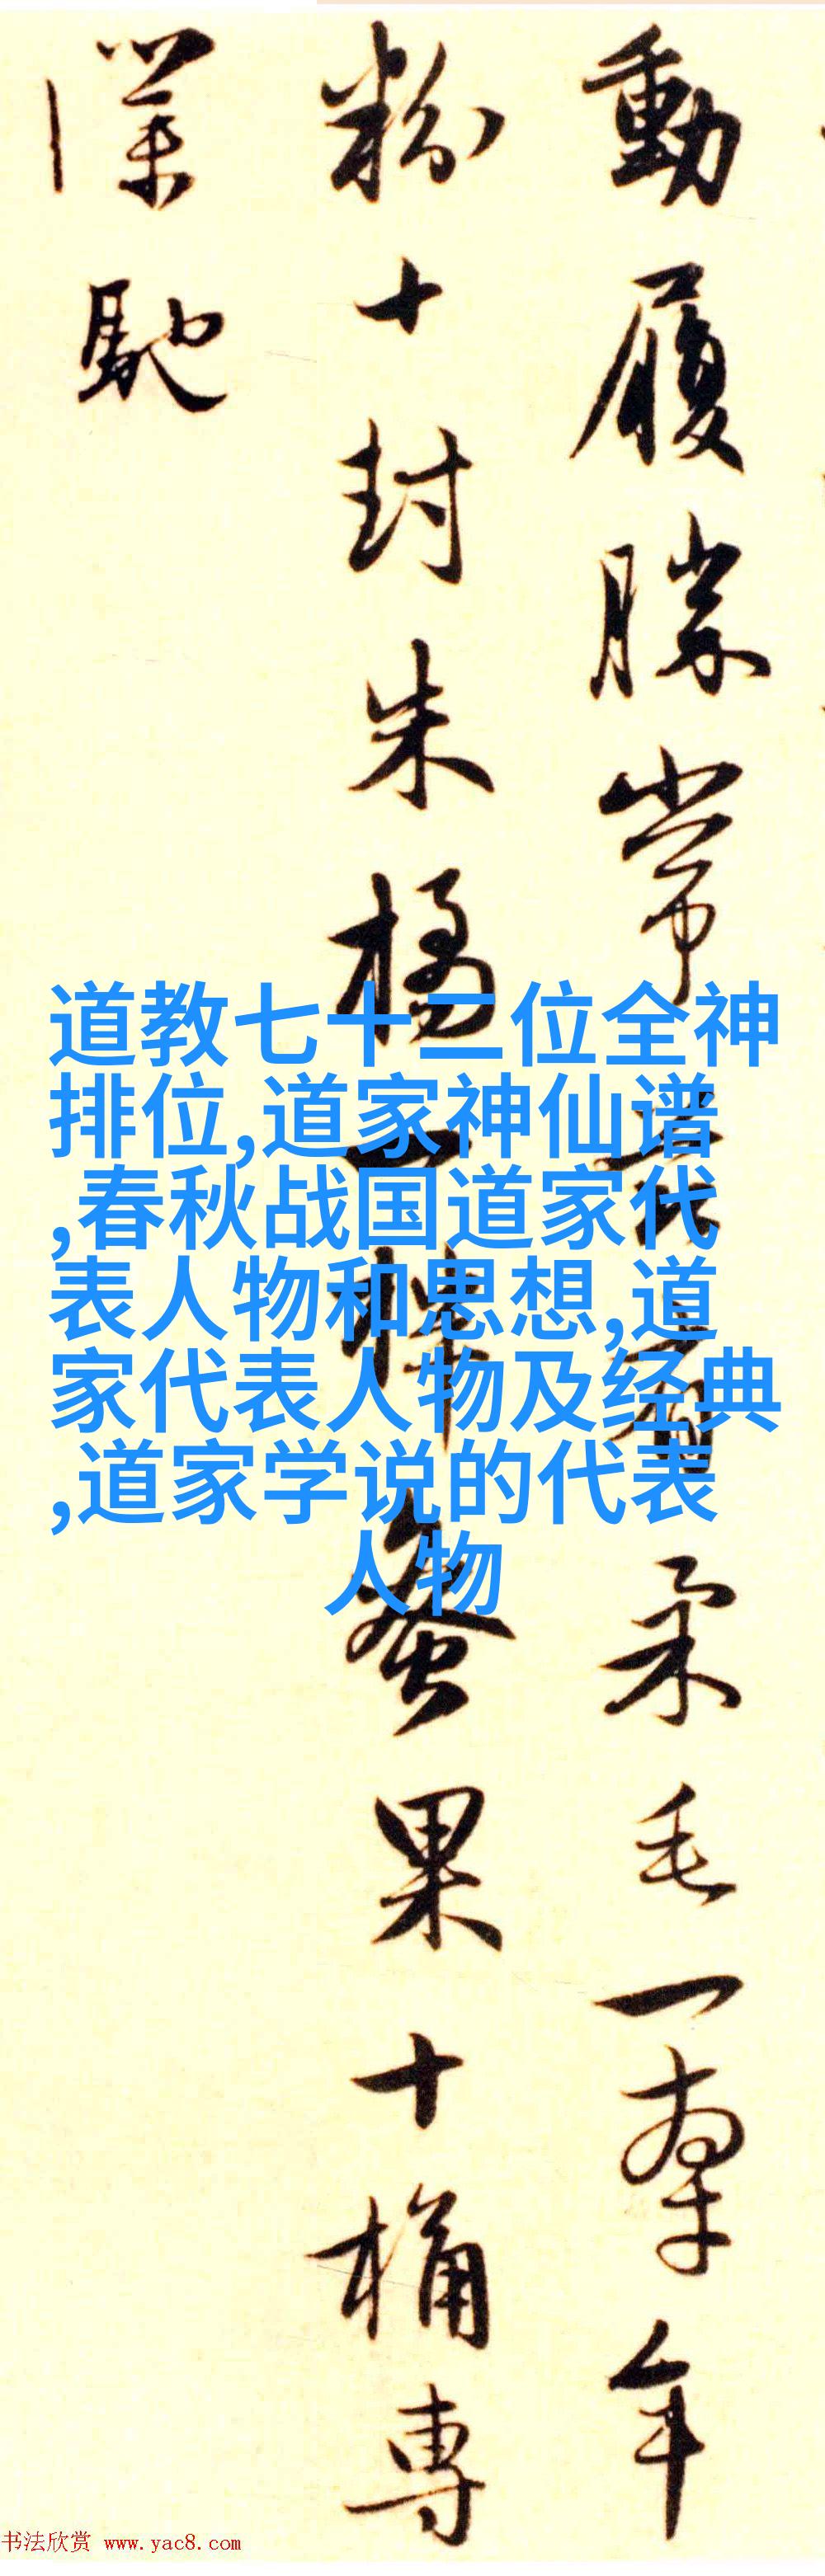 動履勝常柔毛一羣年
粉十封朱橘一果十桶專
僕馳
道教七十二位全神
排位,道家神仙谱
,春秋战国道家代
表人物和思想,道
家代表人物及经典
,道家学说的代表
人物
书法欣赏 www.yac8.com